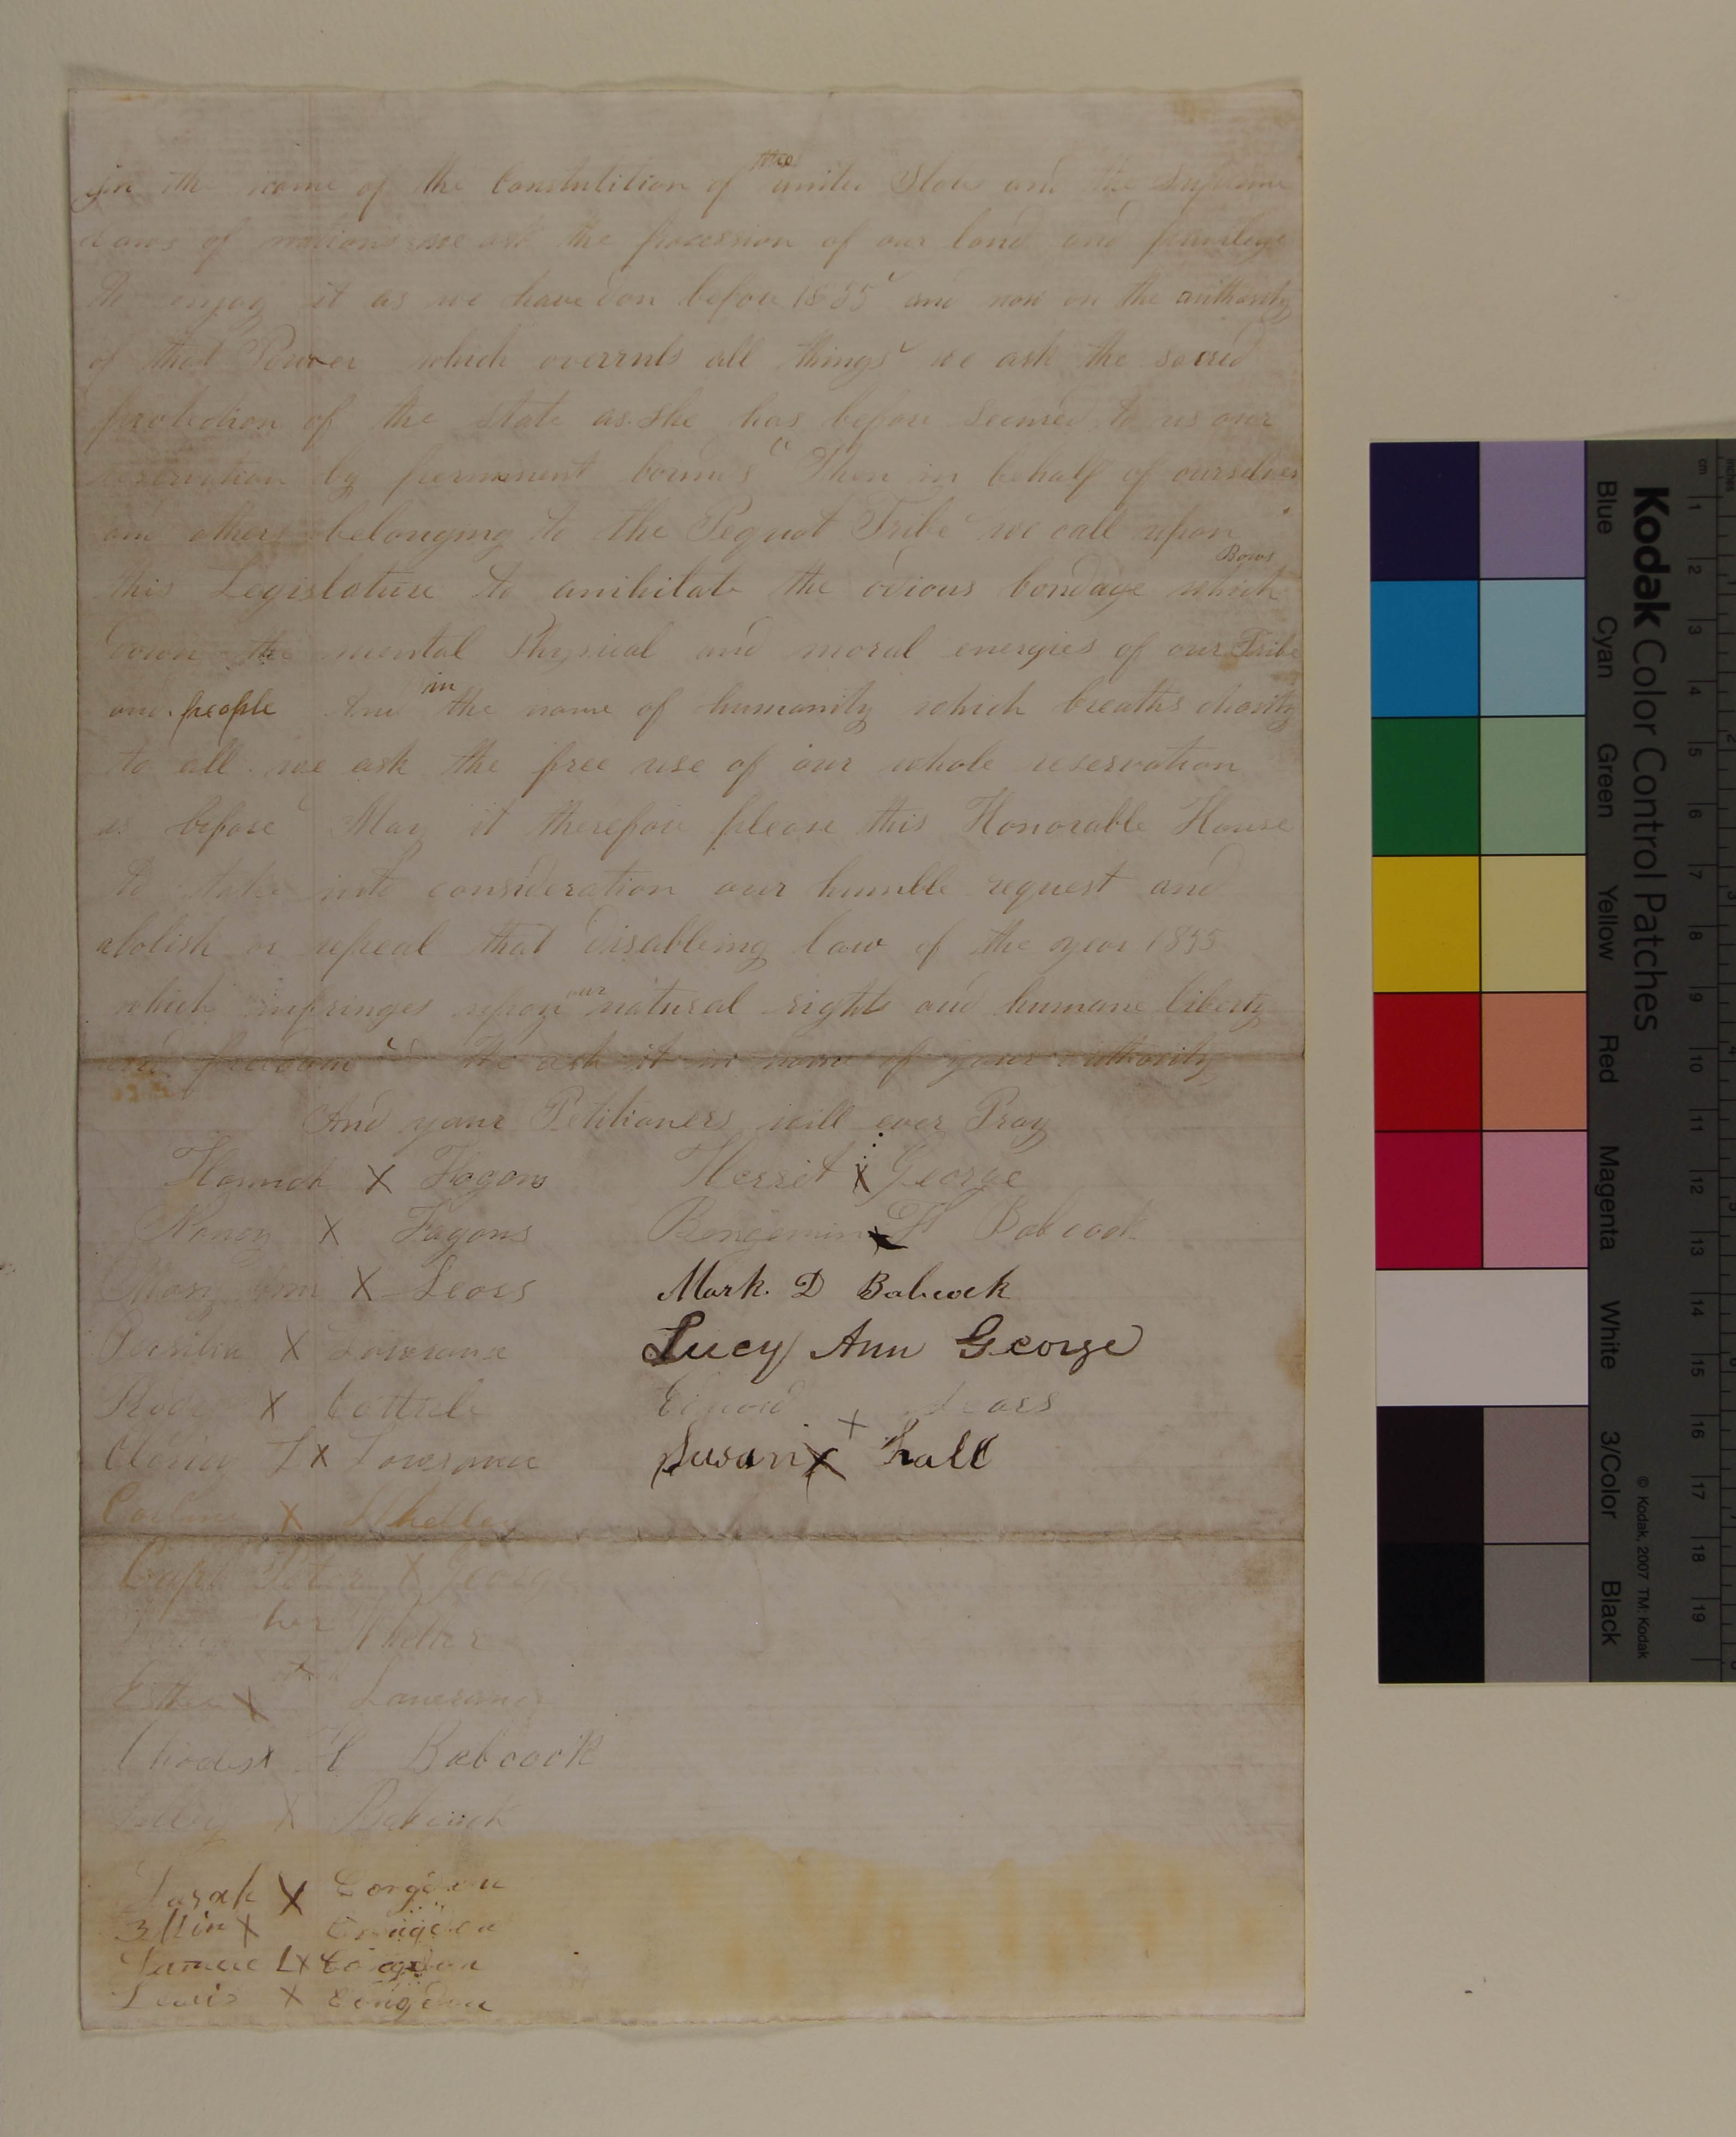 in the name of the Constutition of the united States and the supreme
Laws of nations we ask the procession of our land and privilege
to enjoy it as we have don before 1855 and now on the authority
of that Power which overruls all things we ask the sacred
protection of the state as she has before seemed to us our
reservation by permanent bounds Then in behalf of ourselves
and others belonging to the Pequot Tribe we call upon
this Legislature to anihilate the odious bondage which Bows
down the mental Physical and moral energies of our Tribe
and people And in the name of humanity which breaths charity
to all we ask the free use of our whole reservation
as before May it therefore please this Honorable House
to take into consideration our humble request and
abolish or repeal that disableing law of the year 1855
which infringes upon our natural rights and humane liberty
and freedom We ask it in name of your authority
And your Petitioners will ever Pray
Hannah X Fagons
Nancy X Fagons
Mary Ann X Sears
X Lawrance
X Cottrele
L X Lawrance
X Whelley
Capt Peter X George
her Wheler
Esther X
H Babcook
X Babcock
Sarah X Congdon
X Congdon
L X Congdon
Lewis X Congdon
Herriet X George
Bengemin X H Babcook
Mark. D Babcock
Lucy Ann George
X Sears
Susan X hall
Kodak Color Control Patches
Blue Cyan Green Yellow Red Magenta White 3/Color Black
© Kodak, 2007 TM: Kodak
cm 1 2 3 4 5 6 7 8 9 10 11 12 13 14 15 16 17 18 19
inches